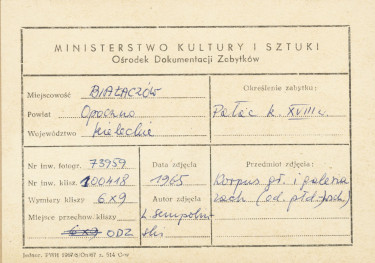 MINISTERSTWO KULTURY I SZTUKI
Ośrodek Dokumentacji Zabytków
Miejscowość BIAŁACZÓW
Powiat Opoczno
Województwo kieleckie
Określenie zabytku:
Pałac k. XVIII w.
Nr inw. fotogr. 73959
Nr inw. kliszy 100418
Wymiary kliszy 6x9
Miejsce przechow. kliszy
6x9 ODZ
Data zdjęcia
1965
Autor zdjęcia
L. Sempoliń-
ski
Przedmiot zdjęcia:
Korpus gł. i
(od płd.